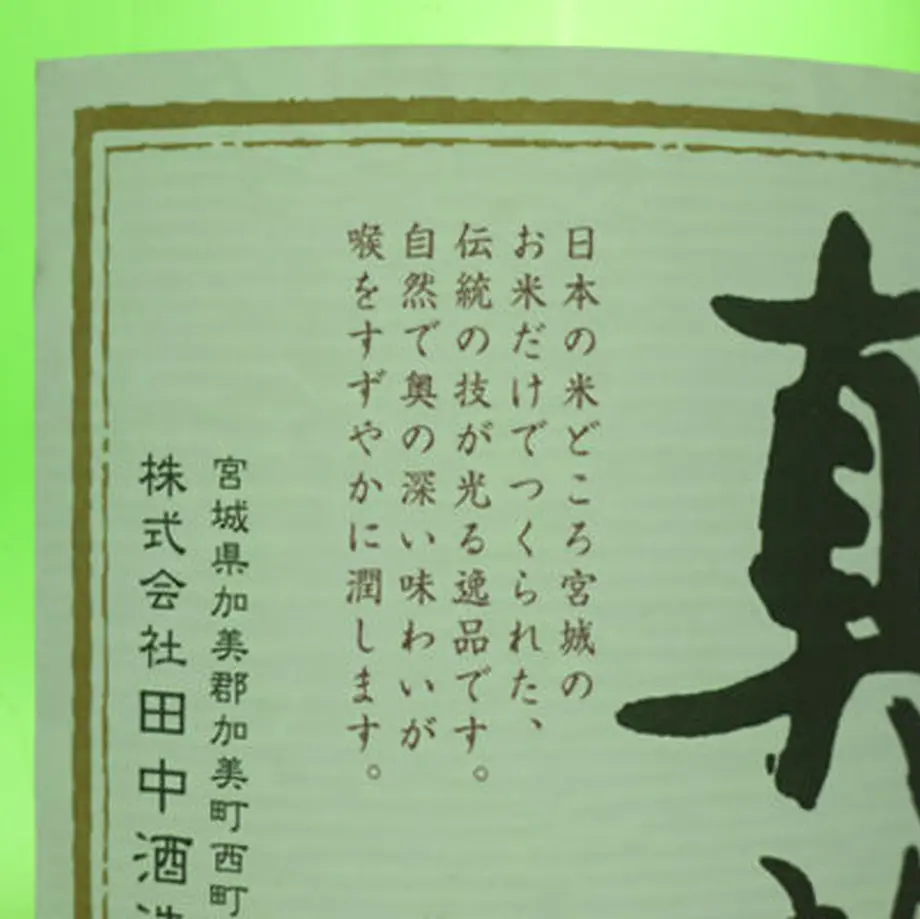 真
日本の米どころ宮城の
お米だけでつくられた、
伝統の技が光る逸品です。
自然で奥の深い味わいが
喉をすずやかに潤します。
宮城県加美郡加美町西町
株式会社田中酒造